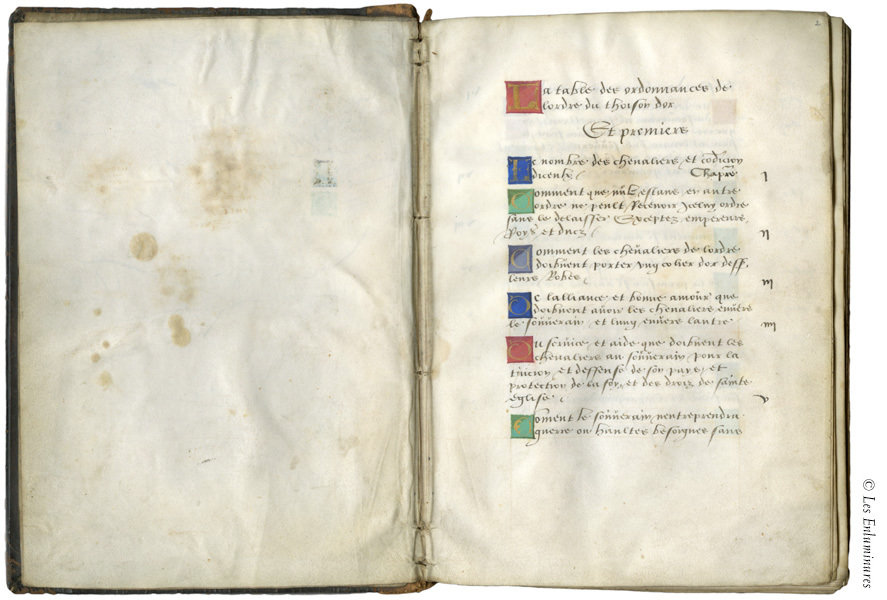 2
La table des ordonnances de
lordre du thoison dor
Et premiers
Le nombre des chevaliers, et condicion
diceulx Chapre I
Comment que nul estans en autre
ordre ne peult recevoir Iceluy ordre
sans le delaisser Exceptez empereurs,
Roys et ducz II
Comment les chevaliers de lordre
doibvent porter ung colier dor dess,
leurs Robes III
De lalliance et bonne amour que
doibvent avoir les chevaliers envers
le souverain, et lung envers lautre IIII
Du service et aide que doibvent les
chevaliers au souverain pour la
tuicion et deffense de son pays, et
protection de la foy, et des droiz de sainte
eglise V
Coment le souverain nentreprendra
guerre ou haultes besoignes sans
© Les Enluminures